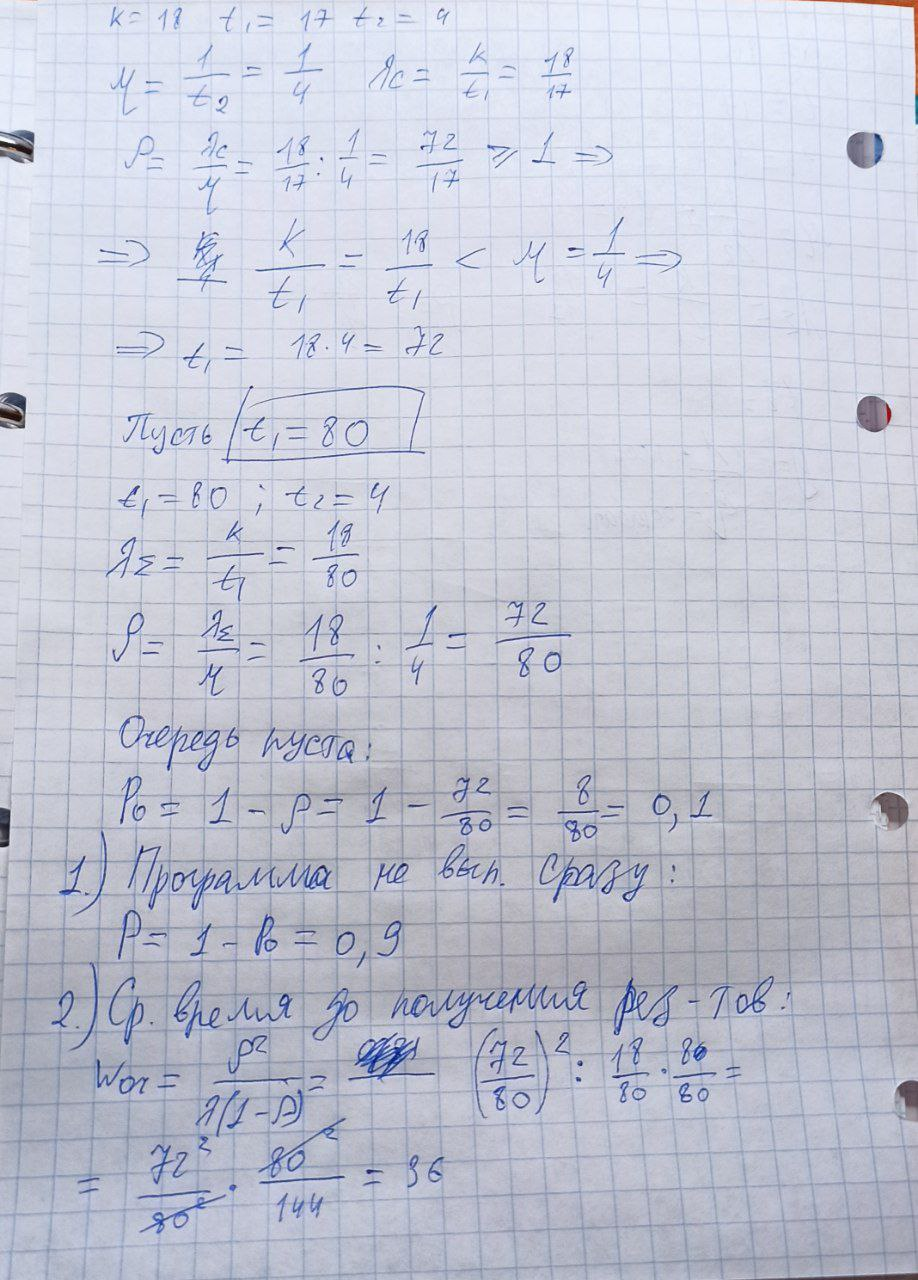 k = 18 t₁ = 17 t₂ = 4
μ = 1/t₂ = 1/4 λc = k/t₁ = 18/17
ρ = λc/μ = 18/17 : 1/4 = 72/17 ⩾ 1 ⇒
⇒ k/t₁ = 18/t₁ < μ = 1/4 ⇒
⇒ t₁ = 18·4 = 72
Пусть t₁ = 80
t₁ = 80 ; t₂ = 4
λΣ = k/t₁ = 18/80
ρ = λΣ/μ = 18/80 : 1/4 = 72/80
Очередь пуста:
P₀ = 1 - ρ = 1 - 72/80 = 8/80 = 0,1
1.) Программа не вып. сразу:
P = 1 - P₀ = 0,9
2.) Ср. время до получения рез-тов:
Wоч = ρ²/λ(1-ρ) = (72/80)² : 18/80 · 8/80 =
= 72²/80² · 80²/144 = 36